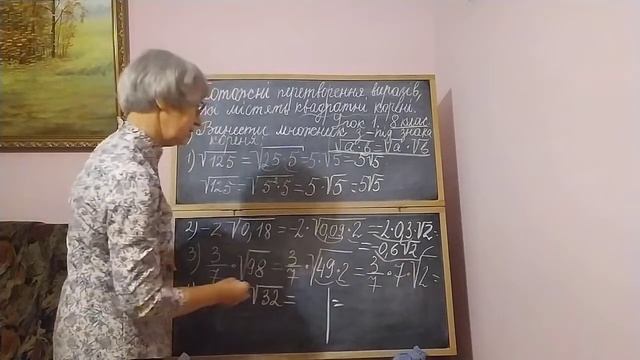 тотожні перетворення виразів,
які містять квадратні корені.
Урок 1. 8 клас
Винести множник з-під знака
кореня: √a·b = √a · √b
1) √125 = √25·5 = 5·√5 = 5√5
√125 = √5²·5 = 5·√5 = 5√5
2) -2·√0,18 = -2·√0,09·2 = -2·0,3√2 =
= -0,6√2
3) 3/7·√98 = 3/7·√49·2 = 3/7·7√2 =
√32 = =